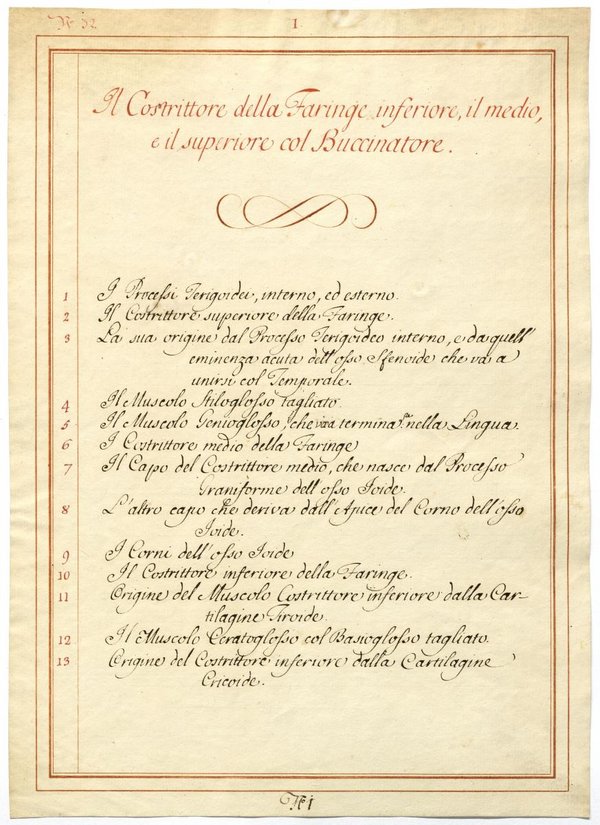 N.° 52
I
Il Costrittore della Faringe inferiore, il medio,
e il superiore col Buccinatore.
1 I Processi Terigoidei, interno, ed esterno.
2 Il Costrittore superiore della Faringe.
3 La sua origine dal Processo Terigoideo interno, e da quell'
eminenza acuta dell'osso Sfenoide che va a
unirsi col Temporale.
4 Il Muscolo Stiloglosso tagliato.
5 Il Muscolo Genioglosso, che va a terminar nella Lingua.
6 I Costrittore medio della Faringe
7 Il Capo del Costrittore medio, che nasce dal Processo
Graniforme dell'osso Ioide.
8 L'altro capo che deriva dall'Apice del Corno dell'osso
Ioide.
9 I Corni dell'osso Ioide
10 Il Costrittore inferiore della Faringe.
11 Origine del Muscolo Costrittore inferiore dalla Car-
tilagine Tiroide.
12 Il Muscolo Ceratoglosso col Basioglosso tagliato.
13 Origine del Costrittore inferiore dalla Cartilagine
Cricoide.
N.° 1